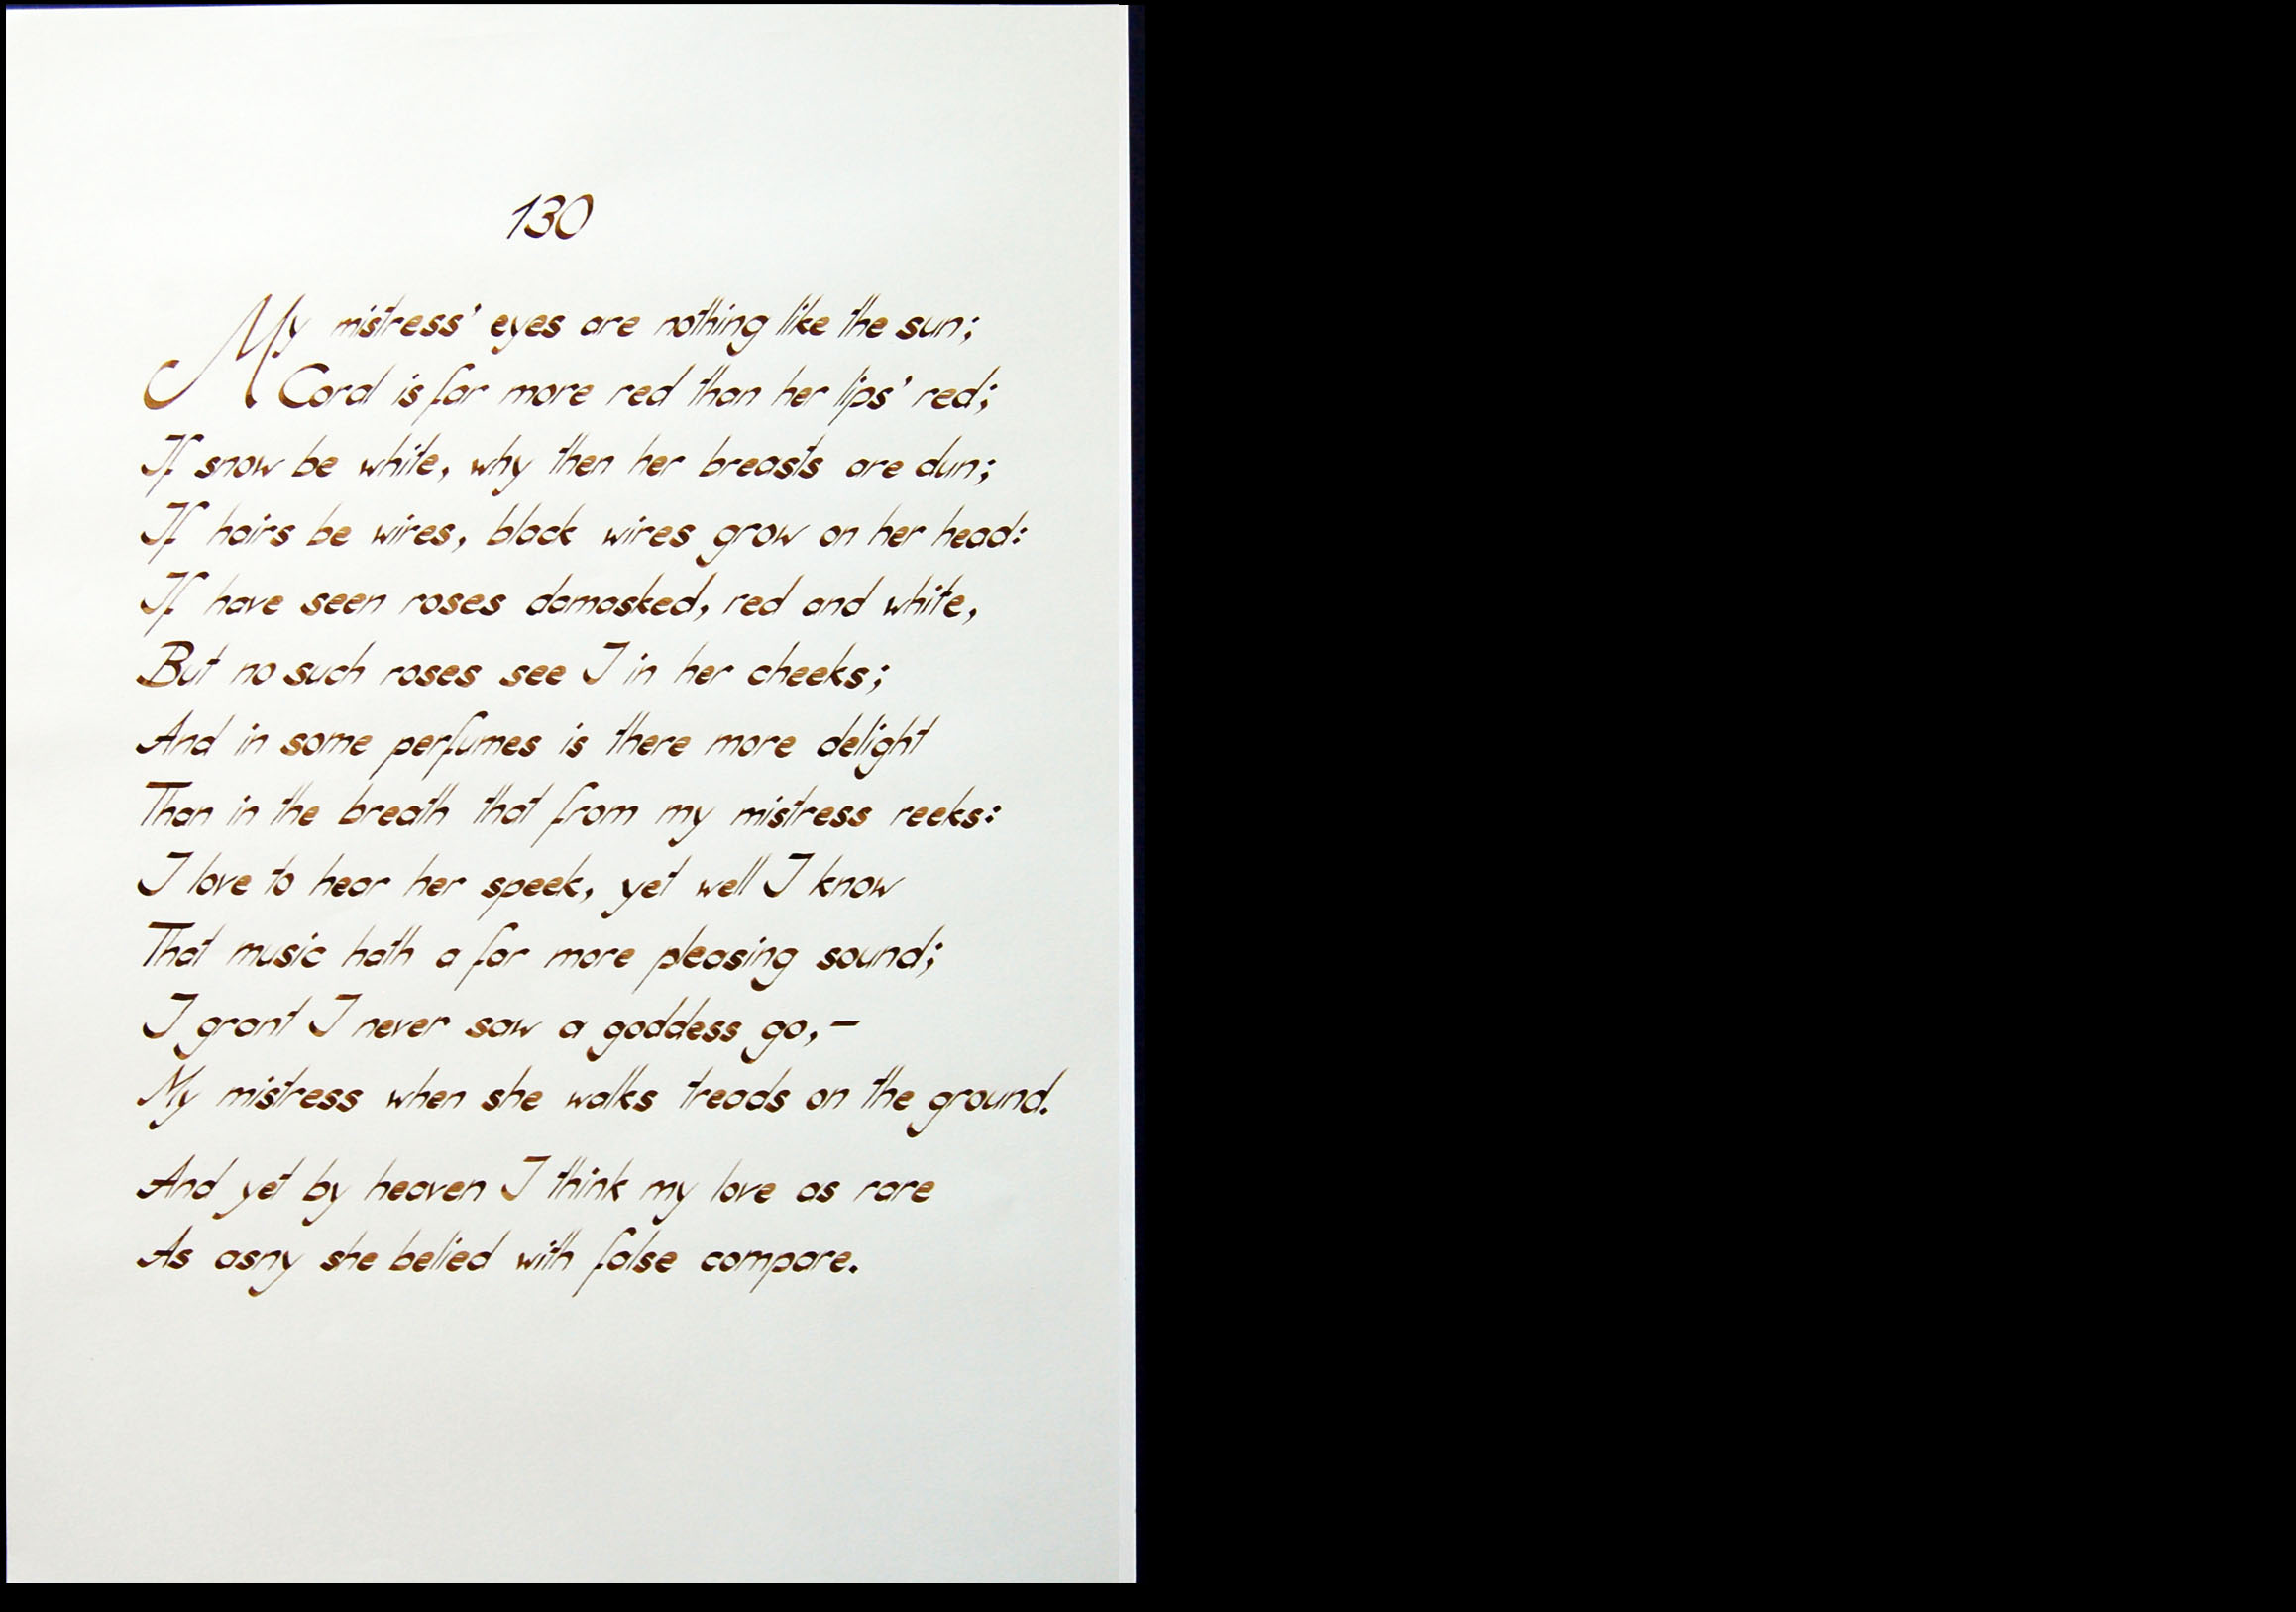 130
My mistress' eyes are nothing like the sun;
Coral is far more red than her lips' red;
If snow be white, why then her breasts are dun;
If hairs be wires, black wires grow on her head:
If have seen roses damasked, red and white,
But no such roses see I in her cheeks;
And in some perfumes is there more delight
Than in the breath that from my mistress reeks:
I love to hear her speek, yet well I know
That music hath a far more pleasing sound;
I grant I never saw a goddess go,-
My mistress when she walks treads on the ground.
And yet by heaven I think my love as rare
As asny she belied with false compare.